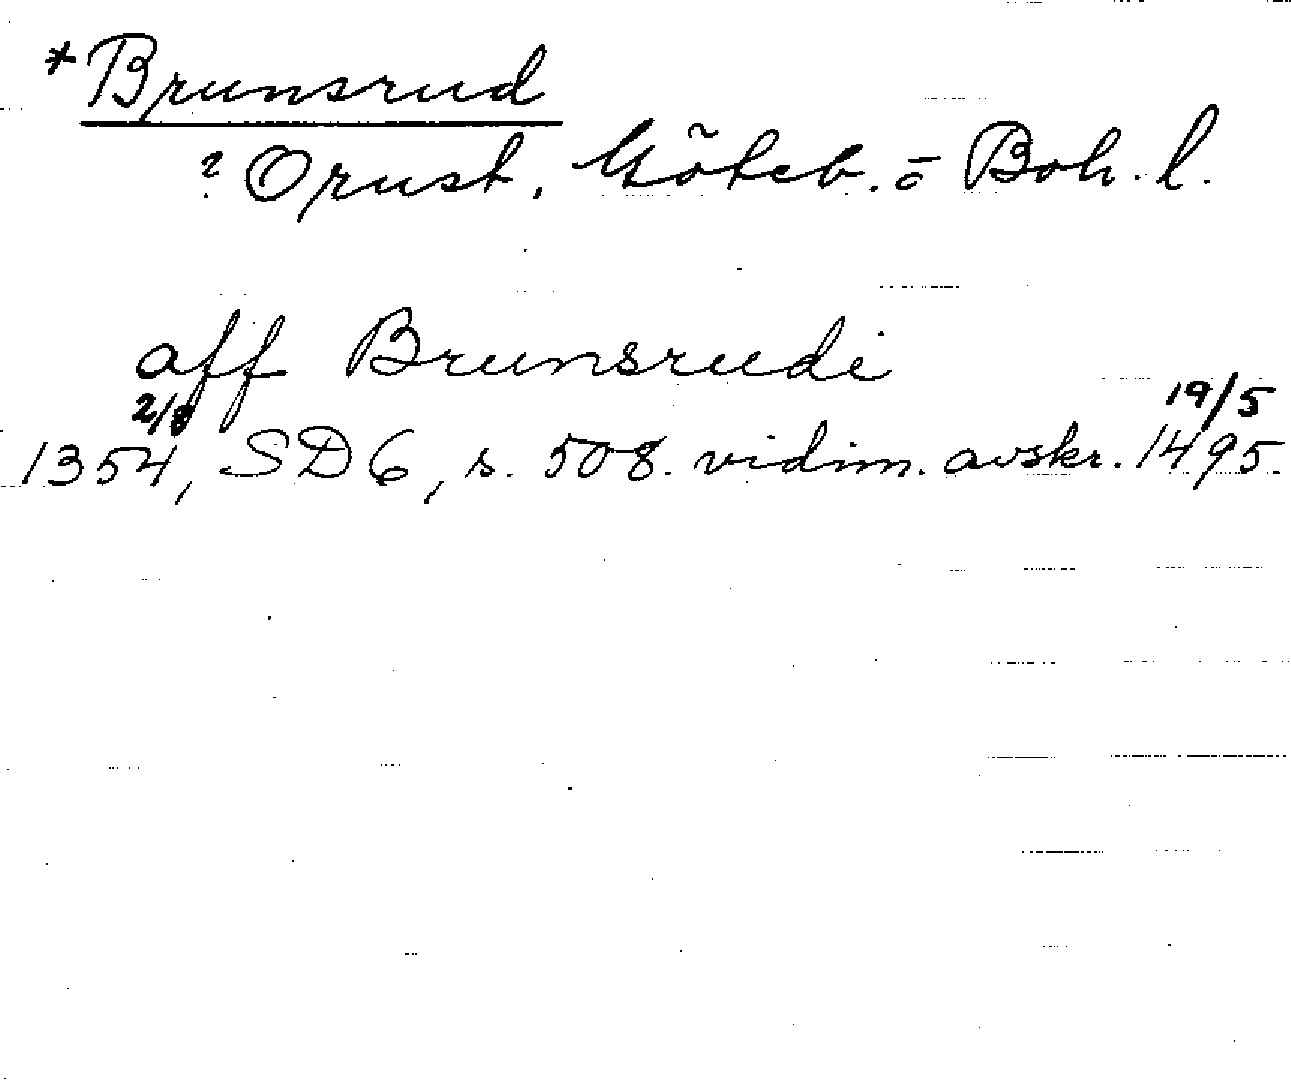 *Brunsrud
? Orust, Göteb. o Boh. l.
aff Brunsrudi
2/8 19/5
1354, SD 6, s. 508. vidim. avskr. 1495.